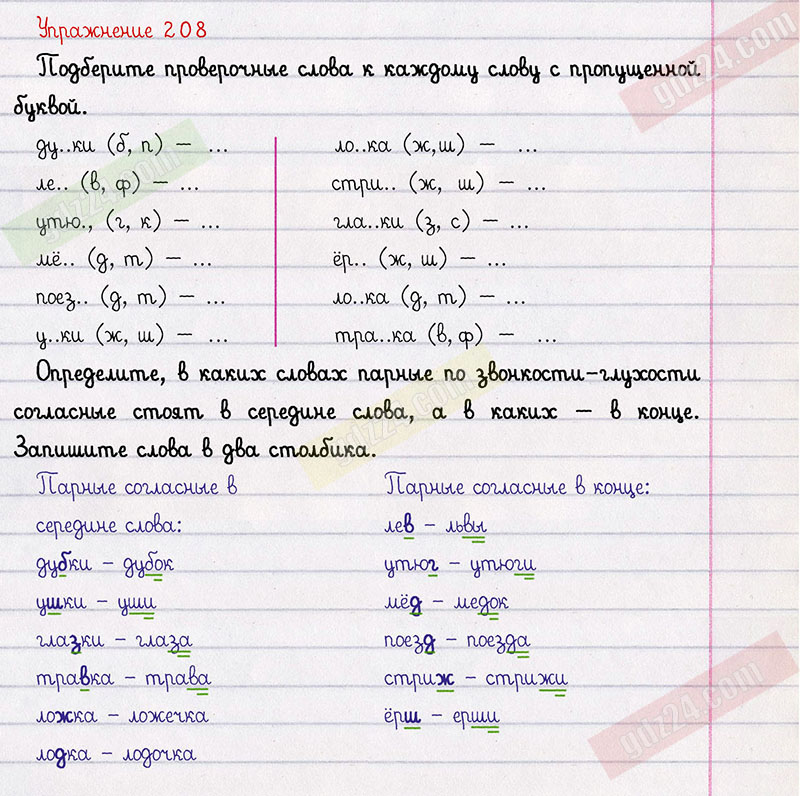 Упражнение 208
Подберите проверочные слова к каждому слову с пропущенной
буквой.
ду..ки (б, п) – ...
ле.. (в, ф) – ...
утю., (г, к) – ...
мё.. (д, т) – ...
поез.. (д, т) – ...
у..ки (ж, ш) – ...
ло..ка (ж,ш) – ...
стри.. (ж, ш) – ...
гла..ки (з, с) – ...
ёр.. (ж, ш) – ...
ло..ка (д, т) – ...
тра..ка (в, ф) – ...
Определите, в каких словах парные по звонкости-глухости
согласные стоят в середине слова, а в каких – в конце.
Запишите слова в два столбика.
Парные согласные в
середине слова:
дубки – дубок
ушки – уши
глазки – глаза
травка – трава
ложка – ложечка
лодка – лодочка
Парные согласные в конце:
лев – львы
утюг – утюги
мёд – медок
поезд – поезда
стриж – стрижи
ёрш – ерши
gdz24.com
gdz24.com
gdz24.com
gdz24.com